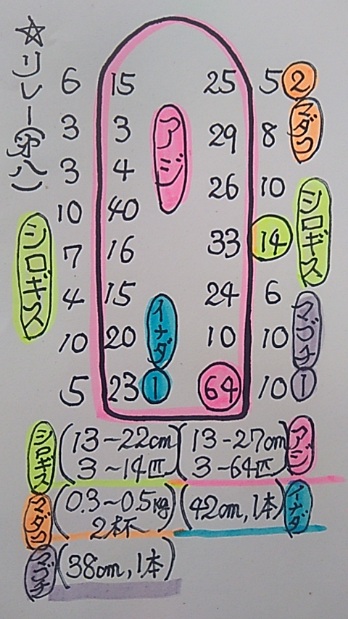 ☆リレー(第八)
6 15 25 5 ②
3 3 29 8
3 4 26 10
10 40 33 ⑭
7 16 24 6
4 15 10 10
10 20 64 10 ①
5 23 ①
アジ
イナダ
マダコ
シロギス
マゴチ
シロギス
シロギス (13~22cm 3~14匹)
アジ (13-27cm 3-64匹)
マダコ (0.3~0.5kg 2杯)
イナダ (42cm, 1本)
マゴチ (38cm, 1本)